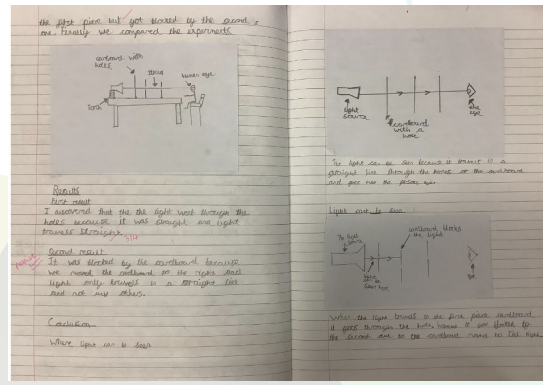 the first piece but got blocked by the second
one. Finally we compared the experiments
cardboard with
holes
human eye
Torch
Results
First result
I discovered that the the light went through the
holes because it was straight and light
travels straight.
Second result
It was blocked by the cardboard because
we moved the cardboard to the right and
light only travels in a straight line
and not any others.
Conclusion
Where light can be seen
light
source
cardboard
with a
hole
the
eye
The light can be seen because it travels in a
straight line through the holes of the cardboard
and goes into the persons eye.
Light cant be seen
cardboard blocks
the light
source
When the light travels to the first piece cardboard
it goes through the hole, however it got blocked by
the second due to the cardboard moved to the right.